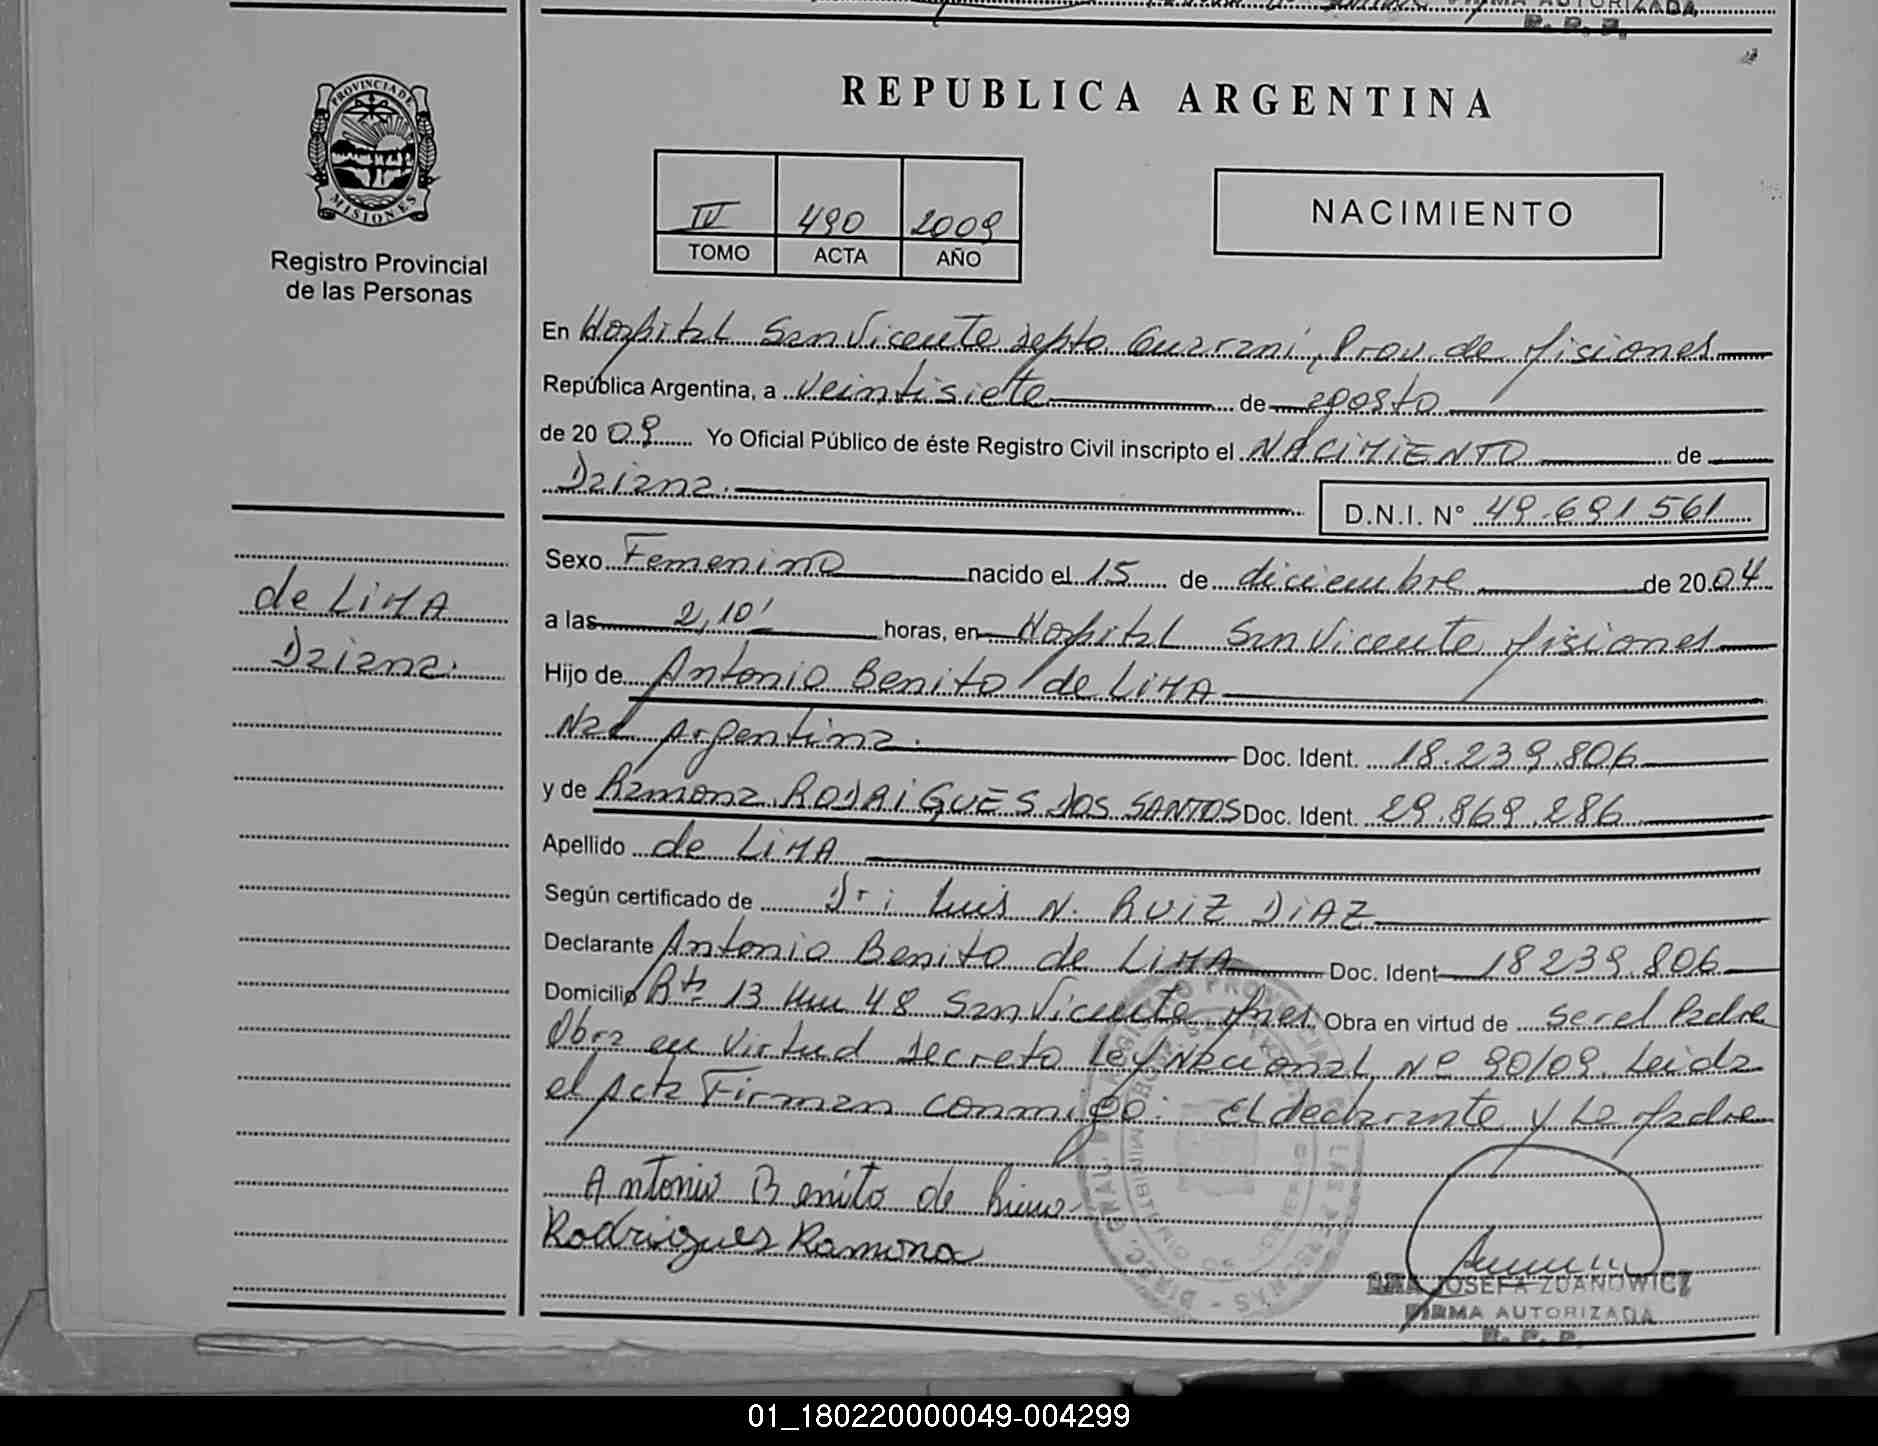 FIRMA AUTORIZADA
R. P. P.
PROVINCIA DE
MISIONES
Registro Provincial
de las Personas
REPUBLICA ARGENTINA
IV 490 2009
TOMO ACTA AÑO
NACIMIENTO
En Hospital San Vicente depto Guarani, Prov. de Misiones
República Argentina, a veintisiete de agosto
de 2009 Yo Oficial Público de éste Registro Civil inscripto el NACIMIENTO de
Daiana.
D.N.I. N° 49.691.561
Sexo Femenino nacido el 15 de diciembre de 2004
a las 2,10' horas, en Hospital San Vicente Misiones
Hijo de Antonio Benito de LIMA
Nac Argentina. Doc. Ident. 18.239.806
y de Ramona RODRIGUES DOS SANTOS Doc. Ident. 29.869.286
Apellido de LIMA
Según certificado de Dr: Luis N. RUIZ DIAZ
Declarante Antonio Benito de LIMA Doc. Ident 18239.806
Domicilio Rta 13 km 48 San Vicente Mnes. Obra en virtud de ser el Padre
Obra en virtud decreto Ley Nacional Nº 90/09. Leida
el Acta Firman conmigo: el declarante y La Madre
Antonio Benito de Lima
Rodrigues Ramona
JOSEFA ZDANOWICZ
FIRMA AUTORIZADA
R. P. P.
de LIMA
Daiana.
01_180220000049-004299